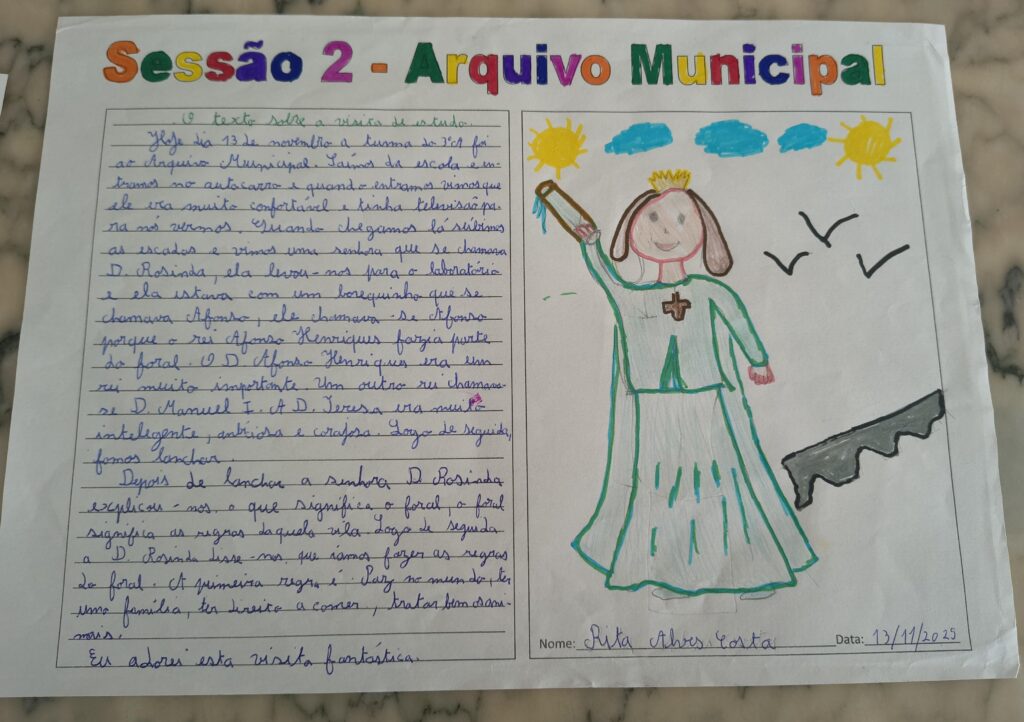 Sessão 2 - Arquivo Municipal
O texto sobre a visita de estudo.
Hoje dia 13 de novembro a turma do 3ºA foi
ao Arquivo Municipal. Saímos da escola e en-
tramos no autocarro e quando entramos vimos que
ele era muito confortável e tinha televisão pa-
ra nós vermos. Quando chegamos lá subimos
as escadas e vimos uma senhora que se chamava
D. Rosinda, ela levou-nos para o laboratório
e ela estava com um borequinho que se
chamava Afonso, ele chamava-se Afonso
porque o rei Afonso Henriques fazia parte
do foral. O D. Afonso Henriques era um
rei muito importante. Um outro rei chamava-
se D. Manuel I. A D. Teresa era muito
intelegente, e corajosa. Logo de seguida,
fomos lanchar.
Depois de lanchar a senhora D. Rosinda
explicou-nos o que significa o foral, o foral
significa as regras daquela vila. Logo de seguida
a D. Rosinda disse-nos que íamos fazer as regras
do foral. A primeira regra é Paz no mundo, ter
uma família, ter direito a comer, tratar bem os ani-
mais.
Eu adorei esta visita fantástica.
Nome: Rita Alves Costa
Data: 13/11/2025